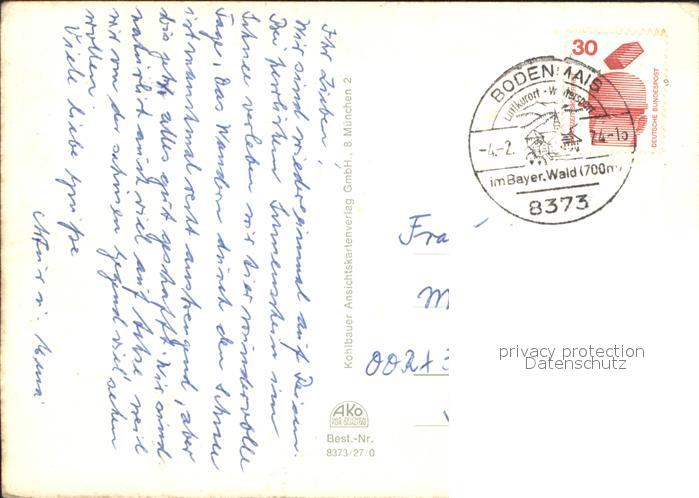 Ihr Lieben!
Wir sind wieder einmal auf Reisen.
Bei herrlichem Sonnenschein im
Schnee verleben wir hier wundervolle
Tage. Das Wandern durch den Schnee
ist manchmal recht anstrengend, aber
bis jetzt alles gut geschafft. Wir sind
natürlich auch viel auf Achse, weil
wir von der schönen Gegend viel sehen
wollen.
Viele liebe Grüße
Kohlbauer Ansichtskartenverlag GmbH., 8 München 2
AKO
Best.-Nr.
8373/27/0
30
DEUTSCHE BUNDESPOST
BODENMAIS
Luftkurort - Wintersport
-4.-2. 74-10
im Bayer. Wald (700m)
8373
Fra
M
privacy protection
Datenschutz